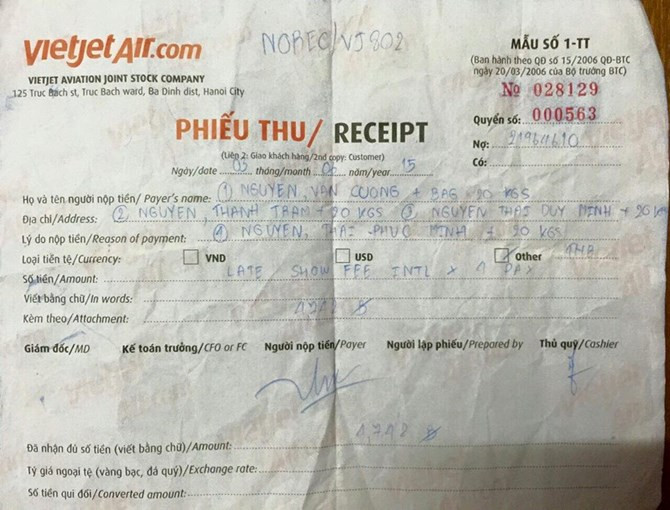 vietjetAir.com
NOBEC/VJ802
MẪU SỐ 1-TT
(Ban hành theo QĐ số 15/2006 QĐ-BTC
ngày 20/03/2006 của Bộ trưởng BTC)
VIETJET AVIATION JOINT STOCK COMPANY
125 Truc Bach st, Truc Bach ward, Ba Dinh dist, Hanoi City
№ 028129
Quyển số: 000563
PHIẾU THU/ RECEIPT
Nợ:
Có:
(Liên 2: Giao khách hàng/2nd copy: Customer)
Ngày/date 03 tháng/month 06 năm/year 15
Họ và tên người nộp tiền/ Payer's name: ① NGUYEN, VAN CUONG + BAG 20 KGS
Địa chỉ/Address: ② NGUYEN, THANH TRAM + 20 KGS ③ NGUYEN THAI DUY MINH + 20 KGS
Lý do nộp tiền/Reason of payment: ④ NGUYEN, THAI PHUC MINH + 20 KGS
Loại tiền tệ/Currency: VND USD Other THB
Số tiền/Amount: LATE SHOW FEE INTL x 4 PAX
Viết bằng chữ/In words:
Kèm theo/Attachment: 4748 ฿
Giám đốc/MD Kế toán trưởng/CFO or FC Người nộp tiền/Payer Người lập phiếu/Prepared by Thủ quỹ/Cashier
4,748 ฿
Đã nhận đủ số tiền (viết bằng chữ)/Amount:
Tỷ giá ngoại tệ (vàng bạc, đá quý)/Exchange rate:
Số tiền qui đổi/Converted amount: